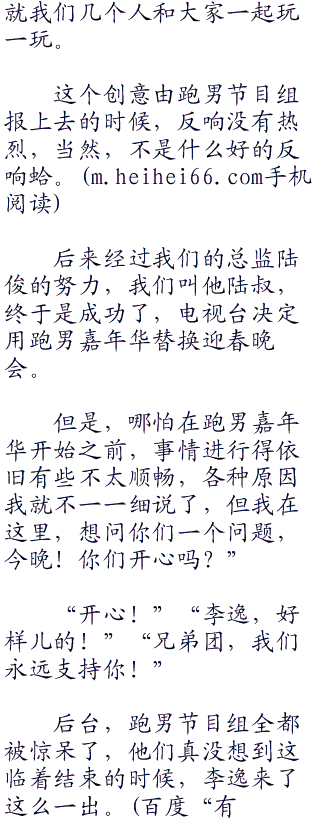 就我们几个人和大家一起玩
一玩。
这个创意由跑男节目组
报上去的时候，反响没有热
烈，当然，不是什么好的反
响蛤。(m.heihei66.com手机
阅读)
后来经过我们的总监陆
俊的努力，我们叫他陆叔，
终于是成功了，电视台决定
用跑男嘉年华替换迎春晚
会。
但是，哪怕在跑男嘉年
华开始之前，事情进行得依
旧有些不太顺畅，各种原因
我就不一一细说了，但我在
这里，想问你们一个问题，
今晚！你们开心吗？”
“开心！”“李逸，好
样儿的！”“兄弟团，我们
永远支持你！”
后台，跑男节目组全都
被惊呆了，他们真没想到这
临着结束的时候，李逸来了
这么一出。(百度“有